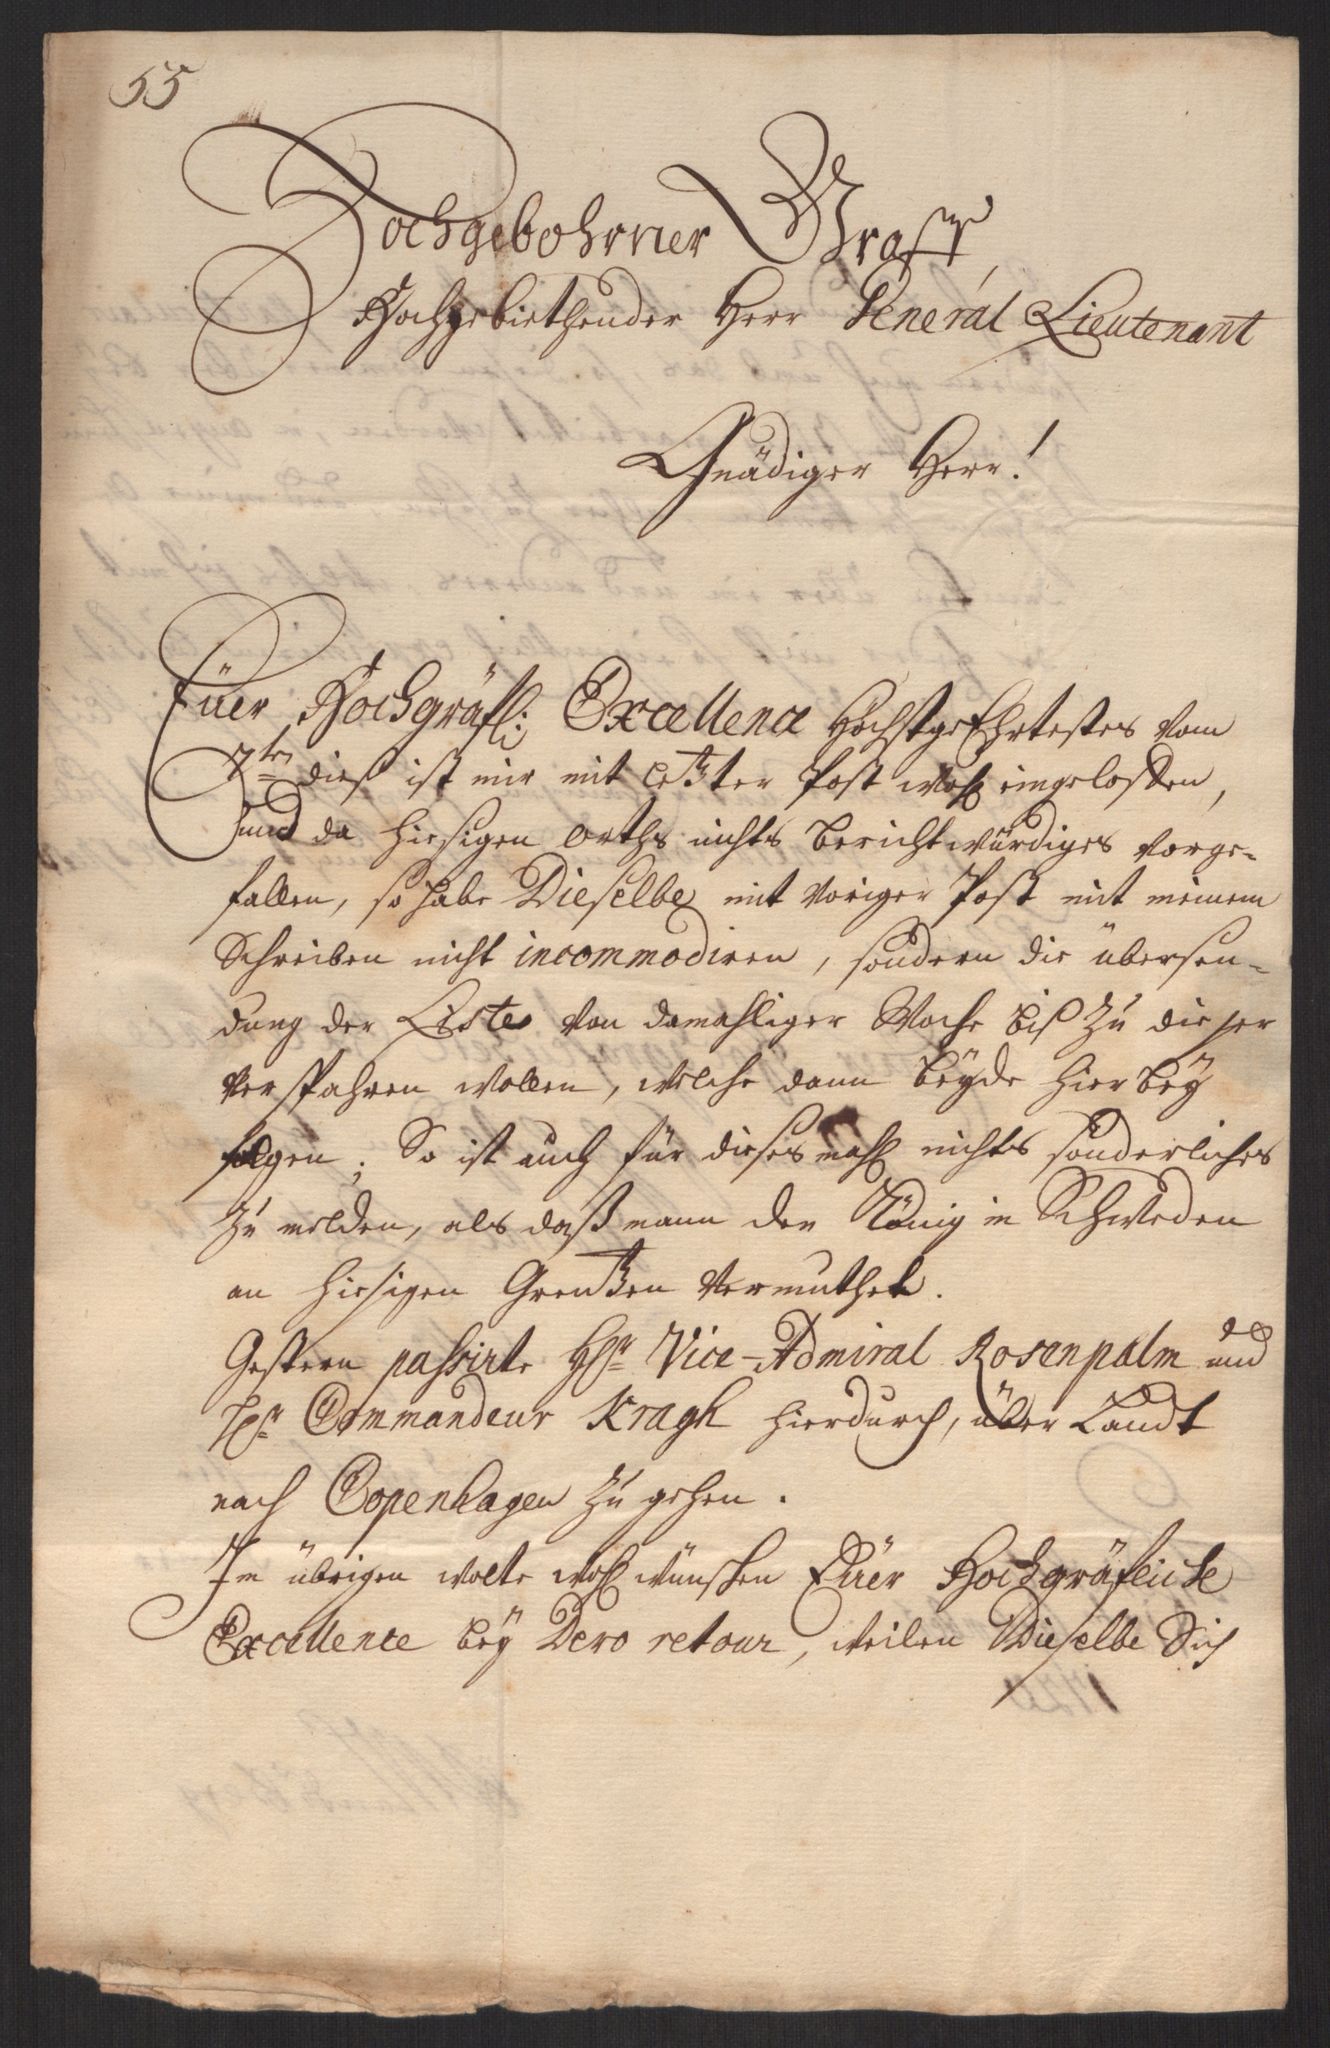 55
Hochgebohrner Graff,
Hochgebiethender Herr General Lieutenant
Gnädiger Herr!
Eüer Hochgräfl: Excellence Höchstgeehrtestes vom
7ten dieß ist mir mit letzter Post wohl eingeloffen,
und da hiesigen orths nichts berichtwürdiges vorge-
fallen, so habe Dieselbe mit voriger Post mit meinem
Schreiben nicht incommodiren, sondern die übersen-
dung der Liste von damahliger Woche biß zu dieser
verspahren wollen, welche dann beyde hierbey
folgen; So ist auch für diesesmahl nichts sonderliches
zu melden, als daß mann den König in Schweden
an hiesigen Grentzen vermuthet.
Gestern passirte Hr. Vice-Admiral Rosenpalm und
Hr. Commandeur Kragh hierdurch, über Landt
nach Copenhagen zu gehen.
Im übrigen wolte wohl wünschen Eüer Hochgräfliche
Excellence bey Dero retour, weilen Dieselbe Sich